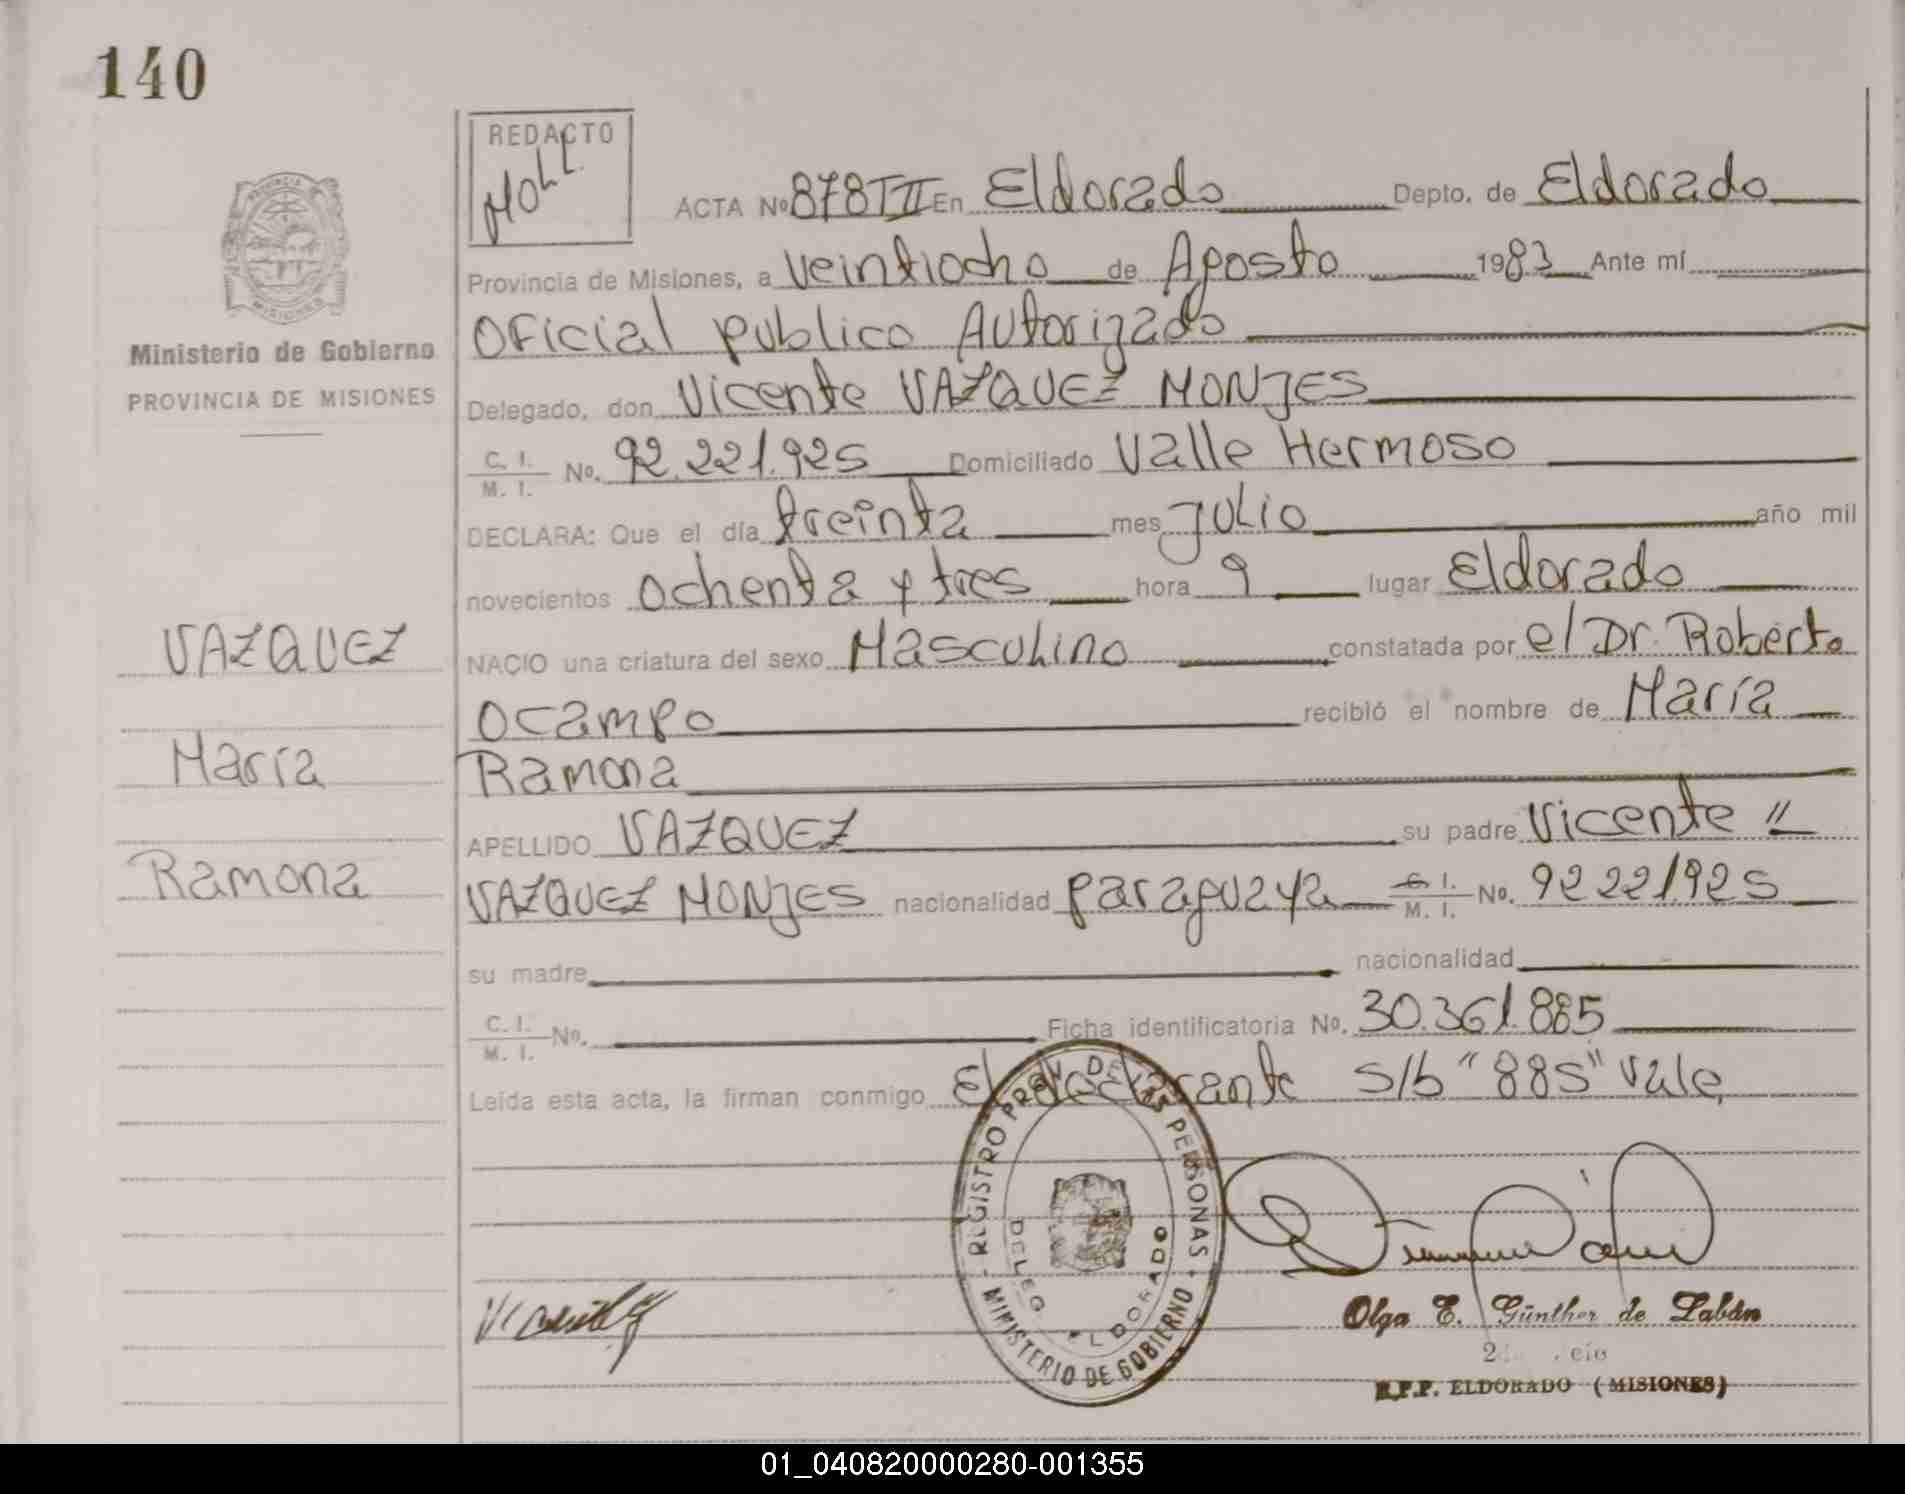 140
REDACTO
MOLL
ACTA Nº 878 T II En Eldorado Depto. de Eldorado
Provincia de Misiones, a veintiocho de Agosto 1983 Ante mí
Oficial publico Autorizado
Ministerio de Gobierno
PROVINCIA DE MISIONES
Delegado, don Vicente VAZQUEZ MONJES
C. I. M. I. No. 92.221.925 Domiciliado Valle Hermoso
DECLARA: Que el día treinta mes Julio año mil
novecientos ochenta y tres hora 9 lugar Eldorado
VAZQUEZ
NACIO una criatura del sexo Masculino constatada por el Dr. Roberto
Ocampo recibió el nombre de María
María
Ramona
APELLIDO VAZQUEZ su padre Vicente "
Ramona
VAZQUEZ MONJES nacionalidad paraguaya C. I. M. I. No. 92 221.925
su madre nacionalidad
C. I. M. I. No. Ficha identificatoria No. 30.361.885
Leída esta acta, la firman conmigo El declarante s/b "885" vale
REGISTRO PROV. DE LAS PERSONAS
MINISTERIO DE GOBIERNO
DELEG ELDORADO
Olga E. Günther de Labán
R.P.P. ELDORADO (MISIONES)
01_040820000280-001355